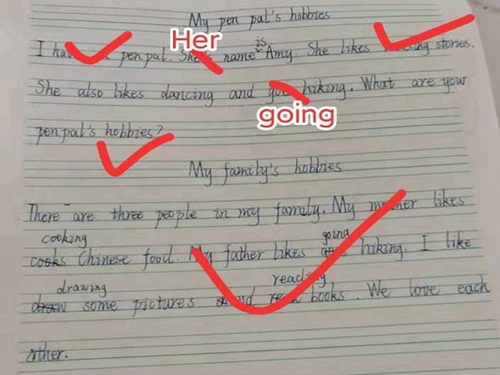 My pen pal's hobbies
Her
is
I have pen pal. She's name Amy. She likes stories.
She also likes dancing and hiking. What are your
going
pen pal's hobbies?
My family's hobbies
There are three people in my family. My mother likes
cooking going
cooks Chinese food. My father likes hiking. I like
drawing reading
draw some pictures books. We love each
other.